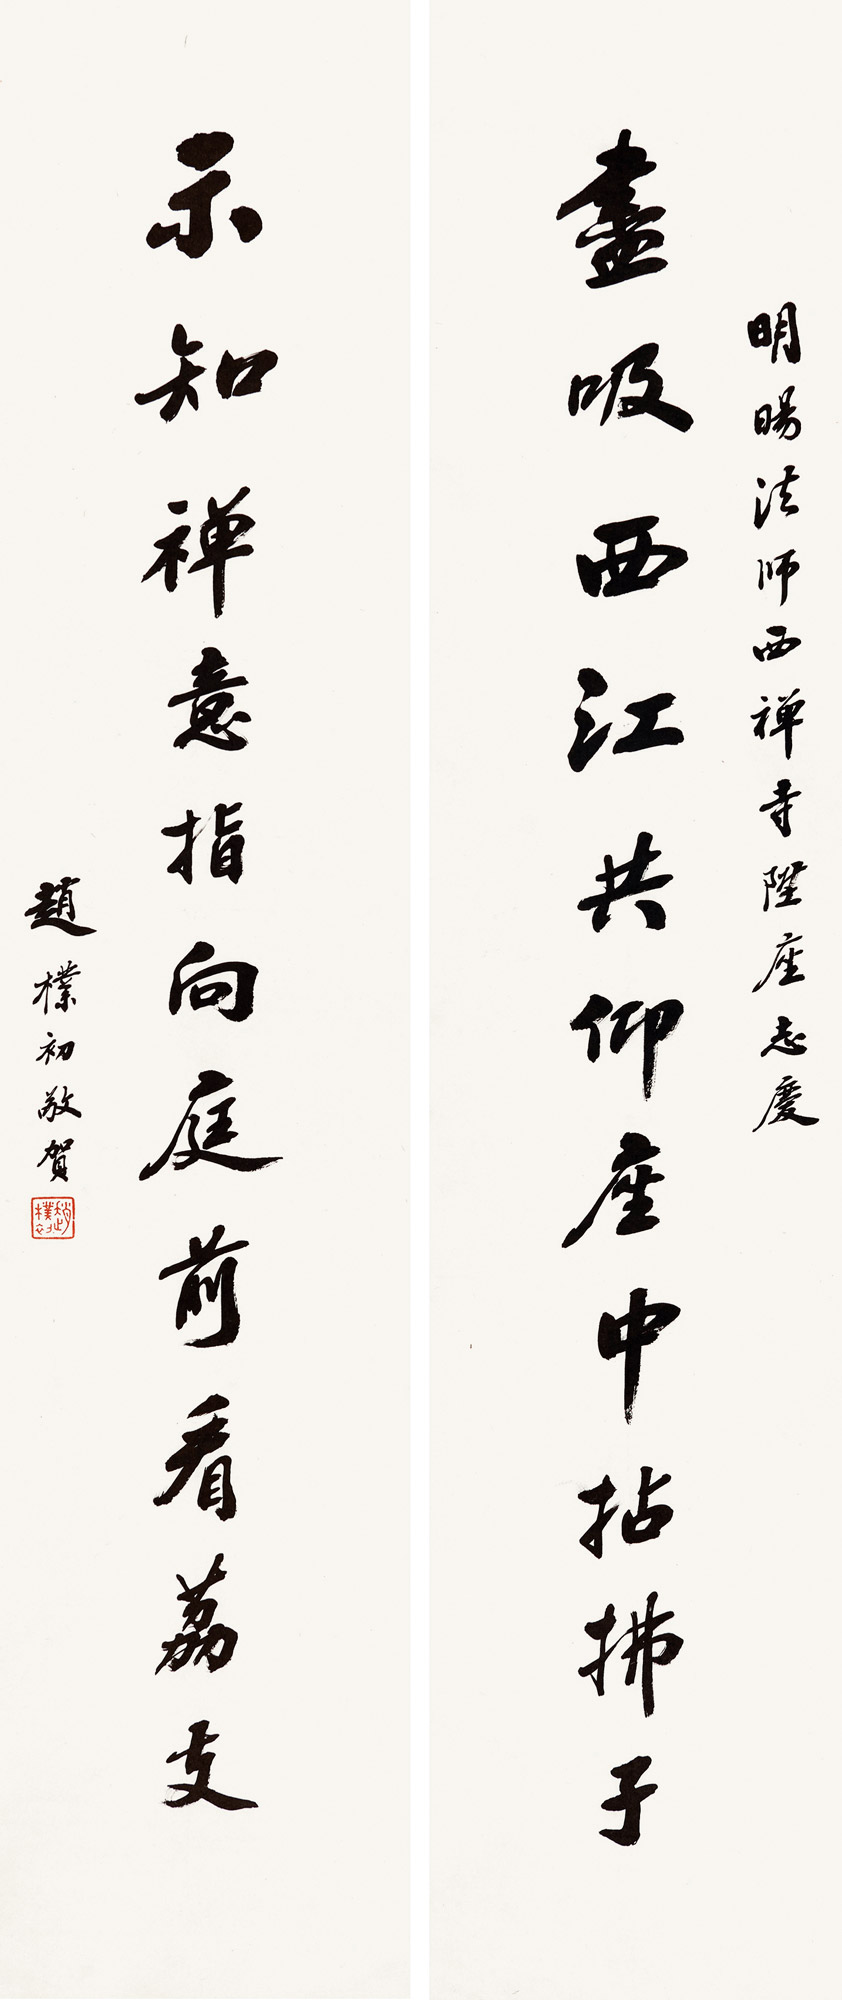 明暘法師西禪寺陞座志慶
盡吸西江共仰座中拈拂子
示知禪意指向庭前看荔支
趙樸初敬賀
趙樸初